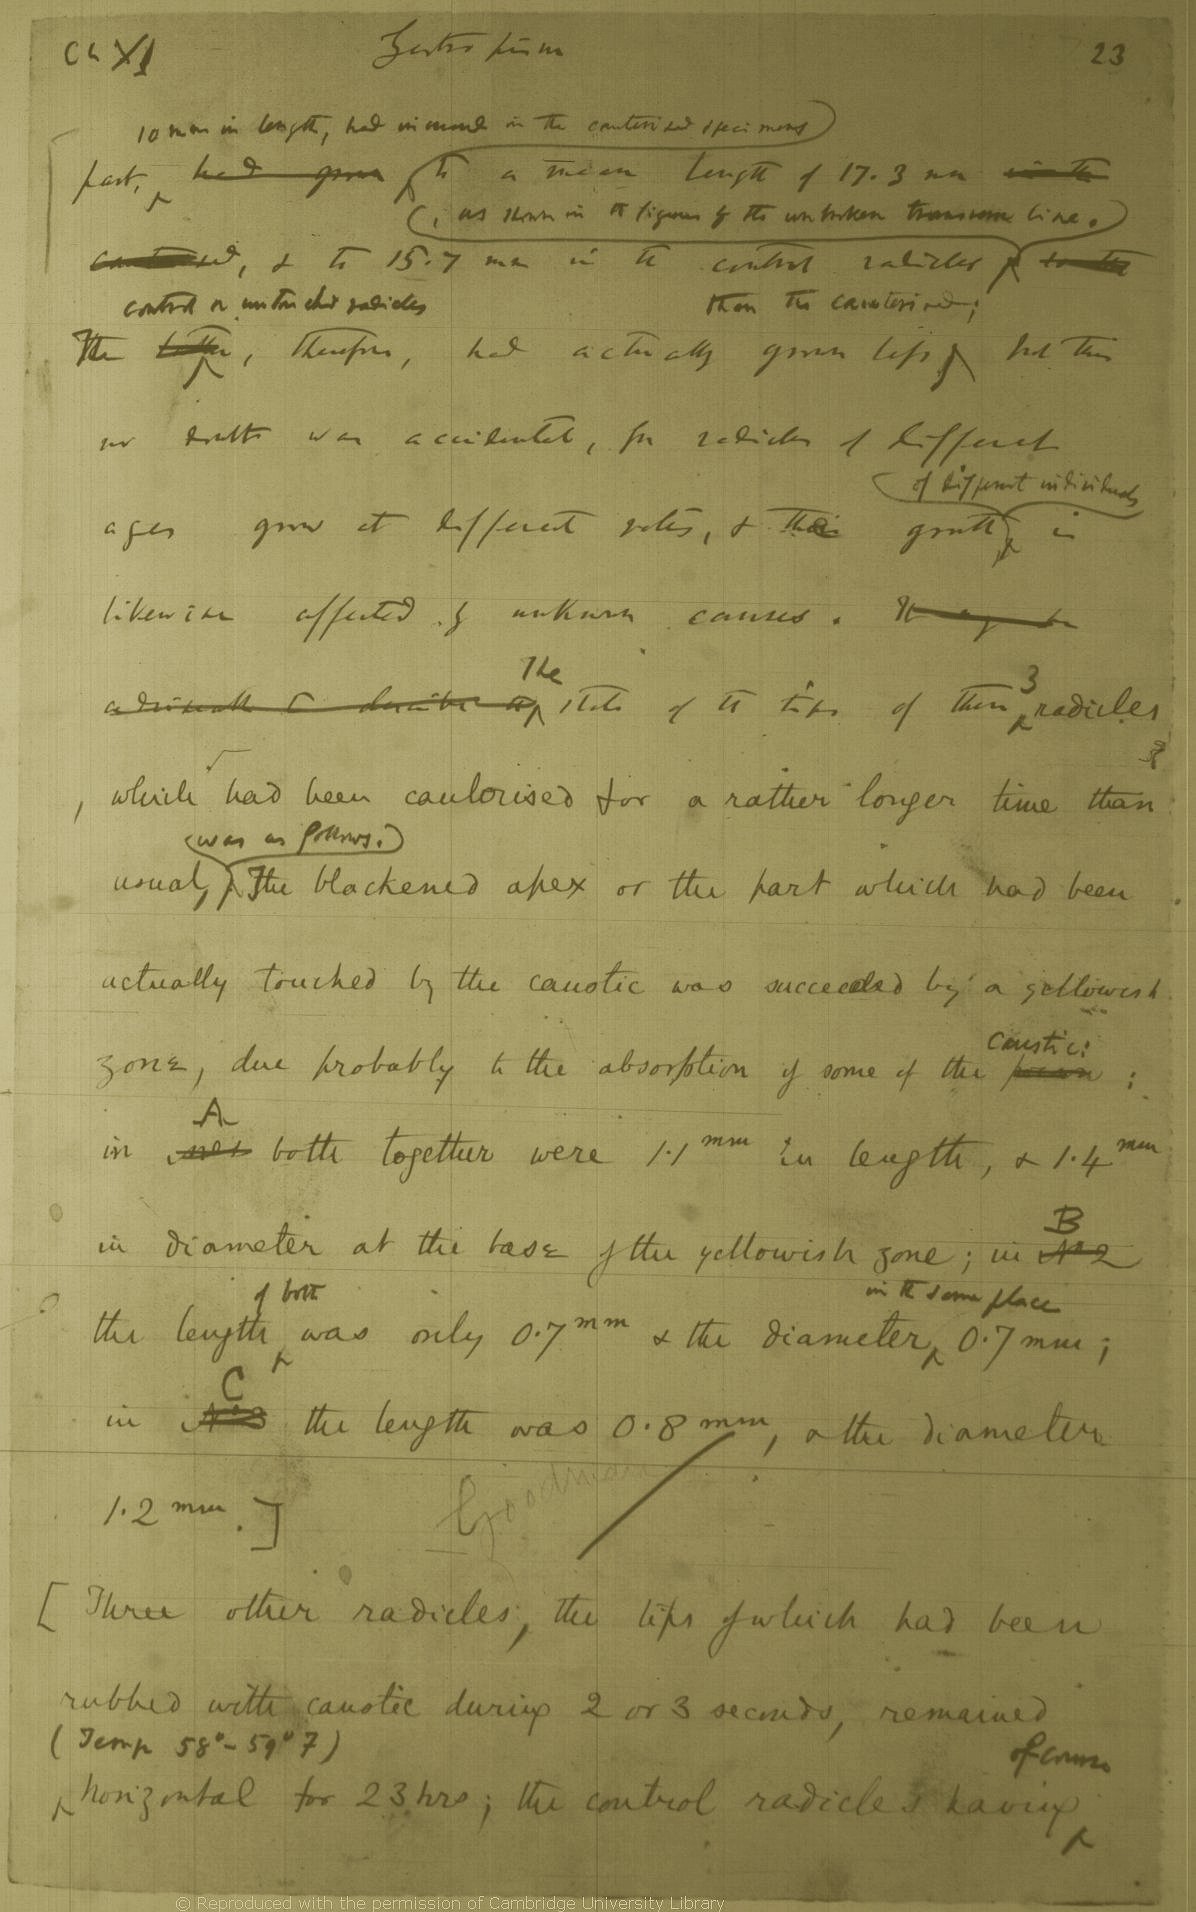 Ch XI Geotropism 23
10 mm in length, had increased in the cauterised specimens
part, had grown to a mean length of 17.3 mm in the
(, as shown in the figures by the unbroken transverse line.)
cauterised, & to 15.7 mm in the control radicles, so the
control or untouched radicles than the cauterised;
The latter, therefore, had actually grown less, but this
no doubt was accidental, for radicles of different
of different individuals
ages grow at different rates, & their growth is
likewise affected by unknown causes. It may be
The 3
advisable to describe the state of the tips of these radicles
, which had been cauterised for a rather longer time than
(was as follows:)
usual, The blackened apex or the part which had been
actually touched by the caustic was succeeded by a yellowish
caustic:
zone, due probably to the absorption of some of the ;
A
in both together were 1.1 mm in length, & 1.4 mm
B
in diameter at the base of the yellowish zone; in No 2
of both in the same place
the length was only 0.7 mm & the diameter 0.7 mm;
C
in No 3 the length was 0.8 mm, & the diameter
1.2 mm.] Goodman
[Three other radicles, the tips of which had been
rubbed with caustic during 2 or 3 seconds, remained
(Temp 58° - 59° F) of course
horizontal for 23 hrs; the control radicles having
© Reproduced with the permission of Cambridge University Library